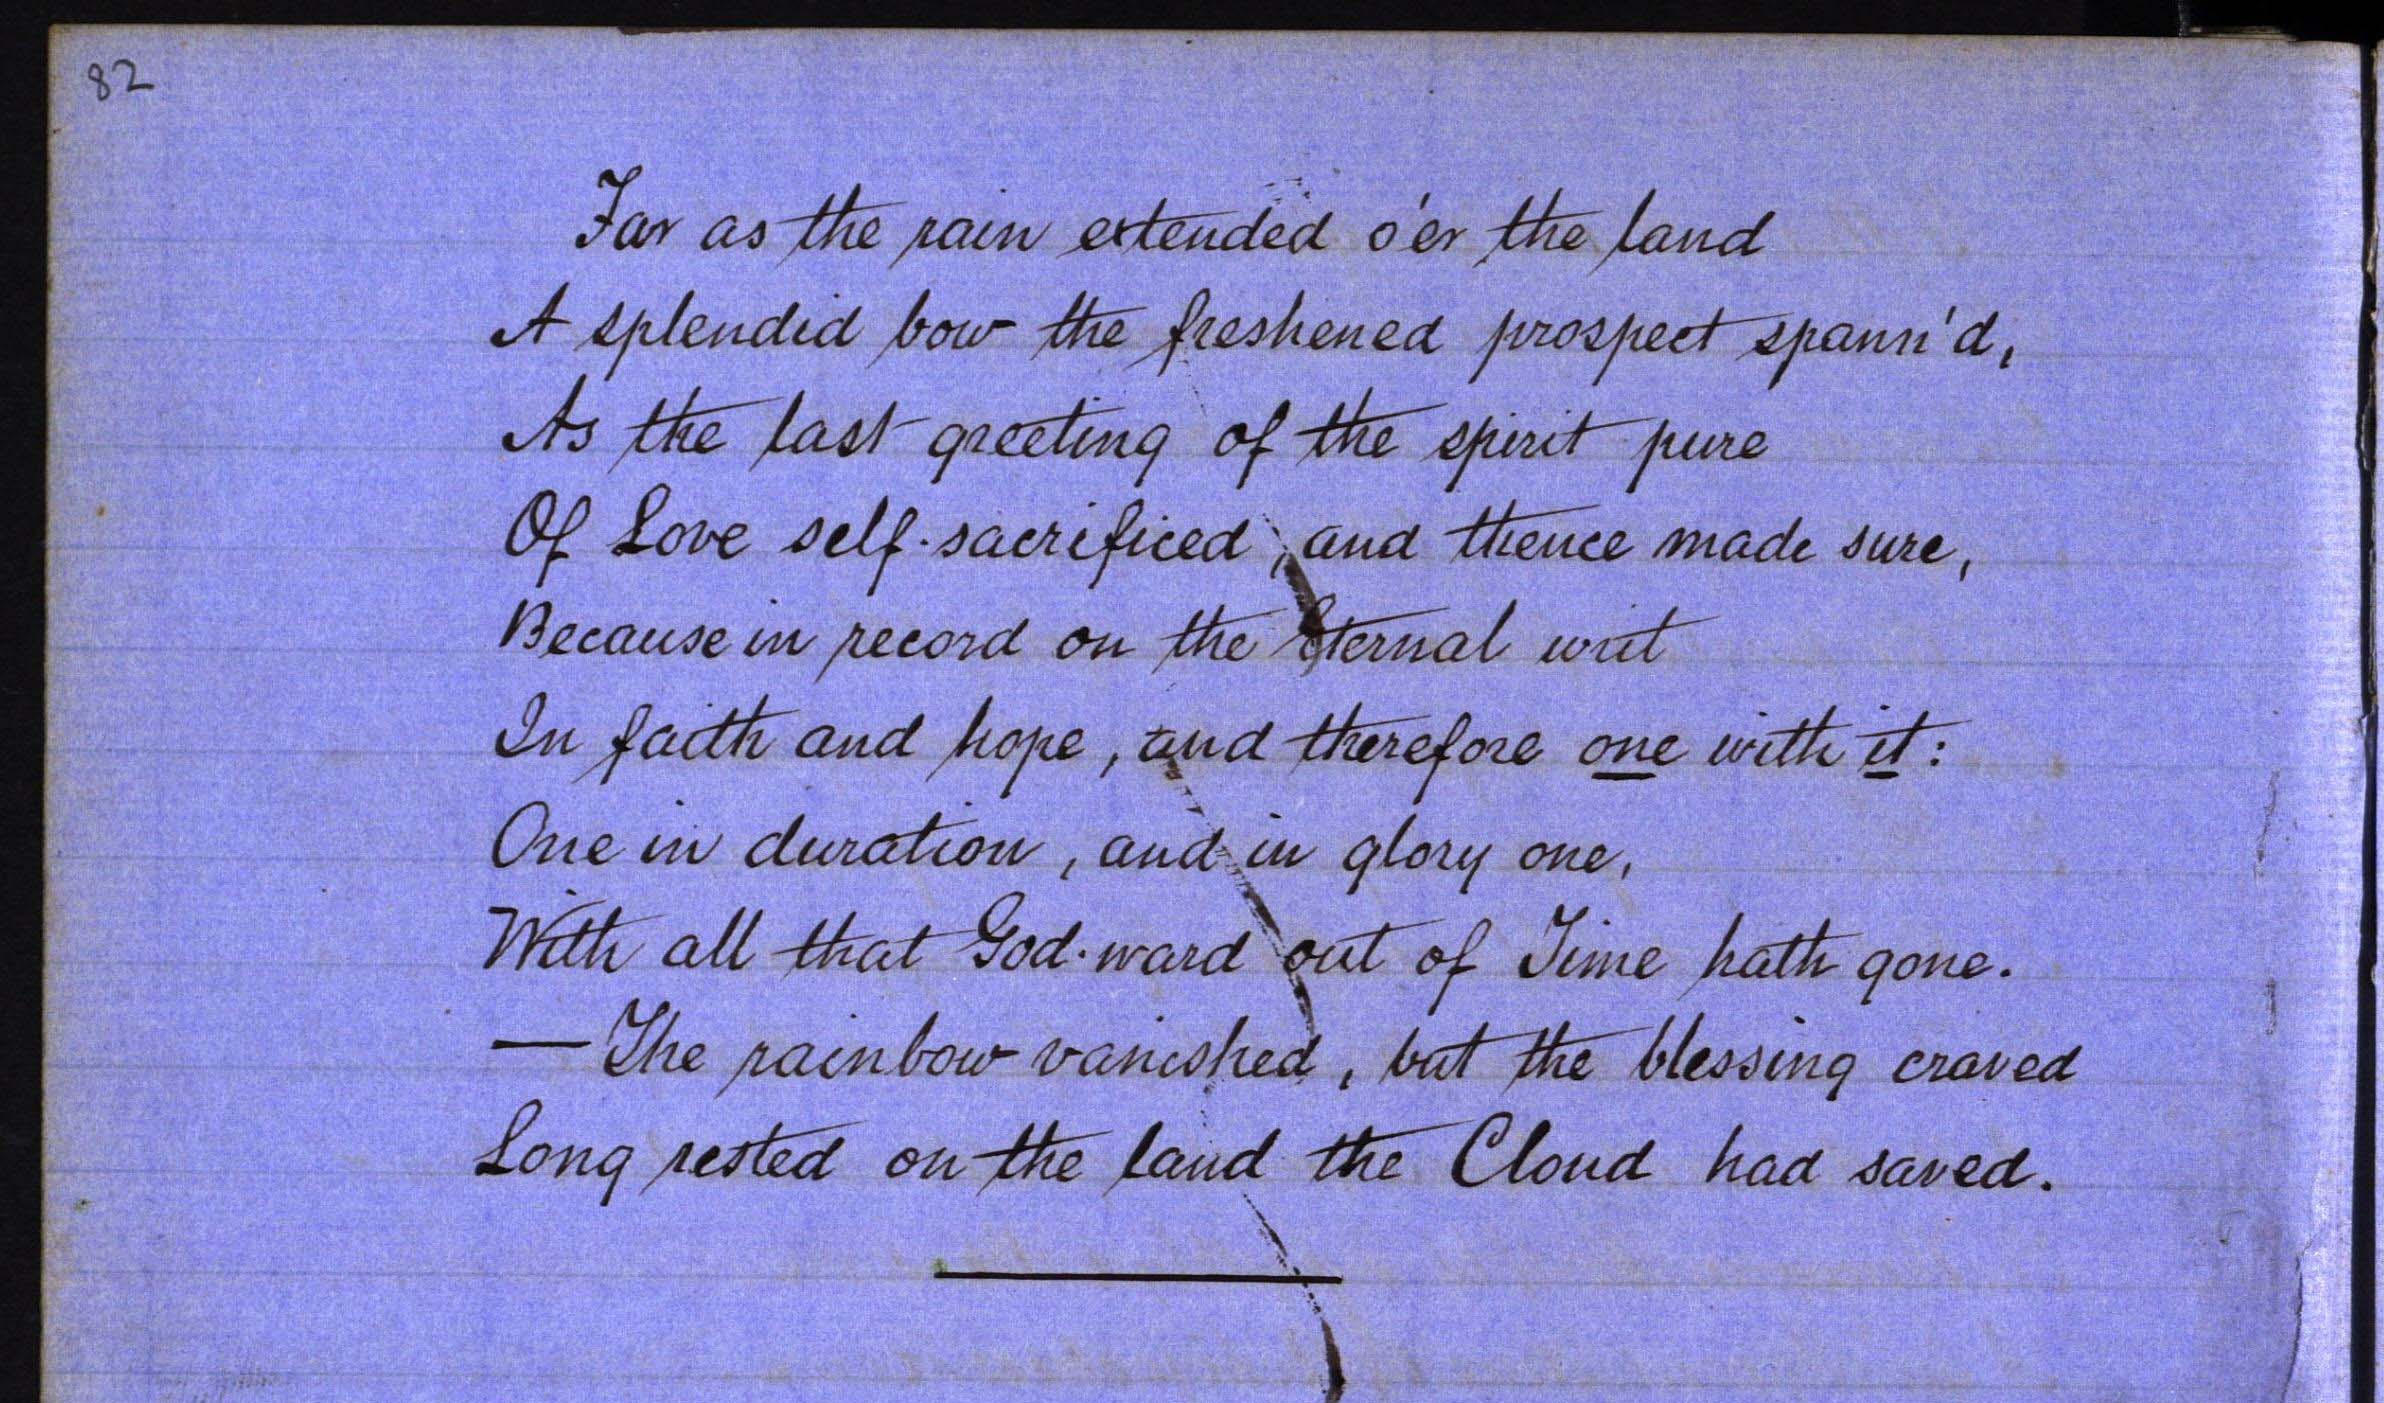 82
Far as the rain extended o'er the land
A splendid bow the freshened prospect spann'd,
As the last greeting of the spirit pure
Of Love self-sacrificed, and thence made sure,
Because in record on the Eternal writ
In faith and hope, and therefore one with it:
One in duration, and in glory one,
With all that God-ward out of Time hath gone.
— The rainbow vanished, but the blessing craved
Long rested on the land the Cloud had saved.